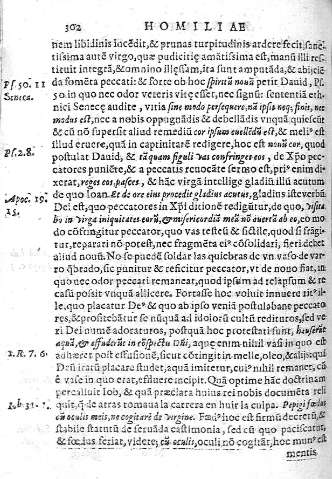 302 HOMILIAE
tiem libidinis incēdit, & prunas turpitudinis ardere fecit, sanc-
tissima autē virgo, quæ pudicitię amatissima est, manū illi res-
tituit integrā, & omnino illęsam, ita sunt amputādæ, & abiiciē-
da fomēta peccati: & forte ob hoc spiritū nouū petit Dauid, Ps.
Ps. 50. 11
50 in quo nec odor veteris vitę esset, nec signū: sententiā ethni-
Seneca.
ci Senecę audite, vitia sine modo persequere, nā ipsis neq; finis, nec
modus est, nec a nobis oppugnādis & debellādis vnquā quiescēt
& cū nō supersit aliud remediū cor ipsum euellēdū est, & meliꝰ est
illud eruere, quā in captiuitatē redigere, hoc est nouū cor, quod
Ps. 2. 8.
postulat Dauid, & tā quam figuli vas confringes eos, de Xp̄o pec-
catores puniēte, & a peccatis renocāte sermo est, priꝰ enim di-
xerat, reges eos pasces, & hāc virgā intellige gladiū illū acutum,
Apoc. 19.
15.
de quo Ioan. Et de ore eius procedit gladius acutus, gladius iste verbū
Dei est, quo peccatores in Xp̄i ditionē rediguntur, de quo, visita-
bo in virga iniquitates eorū, & misericordiā meā nō auertā ab eo, eo mo
do cōfringitur peccator, quo vas testeū & fictile, quod si frāgi-
tur, reparari nō potest, nec fragmēta eiꝰ cōsolidari, fieri debet
aliud nouū. No se puedē soldar las quiebras de vn vaso de var-
ro q̄brado, sic punitur & reficitur peccator, vt de nouo fiat, in
quo nec odor peccari remaneat, quod ipsum ad relapsum & re
casū possit vsquā allicere. Fortasse hoc voluit innuere
ille, quo placatur Deꝰ & quo ab ipso veniā postulabane peccato
res, & profitebātur se nūquā ad idolorū cultū redituros, sed ve-
ri Dei numē adoraturos, postquā hoc protestati sunt, hauserūt
aquā, & effuderūt in cōspectu Dn̄i, aquę enim nihil vas in quo est
1. R. 7. 6.
adhæret post effusionē, sicut cōtingit in melle, oleo, & aliis, qui
Deū iratū placare studet, aquā imiretur, cui nihil remanet, cū
ē vase in quo erat, effluere incipit. Quā optime hāc doctrinam
percalluit Iob, & quā præclara huius rei nobis documēta reli
Iob. 31. 1.
quit, q̄ de atras tomaua la carrera en huir la culpa. Pepigi fœdus
cū oculis meis, ne cogitarē de virgine. Fœdꝰ hoc est firmū decretū, &
stabile statutū de seruāda castimonia, sed cū quo paciscatur,
& fœdus feriat, videte, cū oculis, oculi nō cogitāt, hoc munꝰ est
mentis